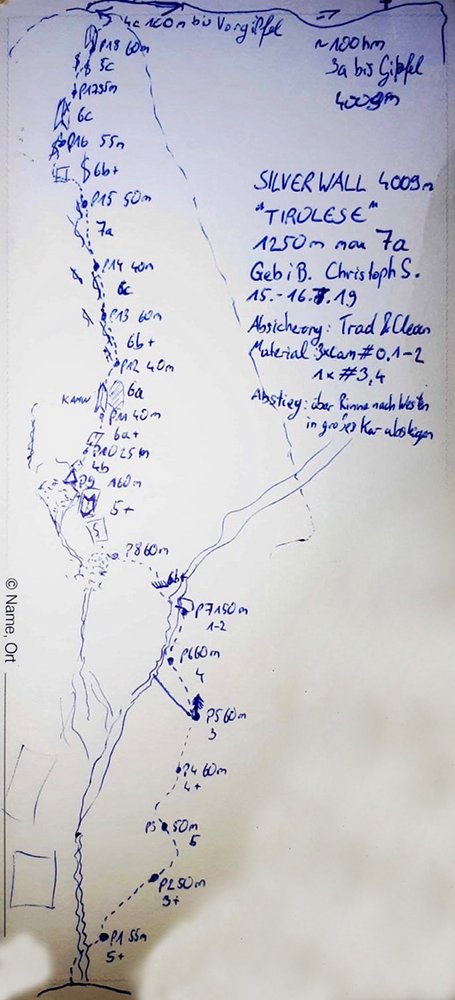 4c 100m bis Vorgipfel
P18 60m
5c
P17 35m
6c
P16 55m
6b+
P15 50m
7a
P14 40m
6c
P13 60m
6b+
P12 40m
6a
KAMIN
P11 40m
6a+
P10 25m
4b
P9 160m
5+
5
P8 60m
6b+
P7 150m
1-2
P6 60m
4
P5 60m
3
P4 60m
4+
P3 50m
5
P2 50m
3+
P1 55m
5+
~100hm
3a bis Gipfel
4009m
SILVER WALL 4009m
"TIROLESE"
1250m max 7a
Gebi B. Christoph S.
15.-16.7.19
Absicherung: Trad & Clean
Material: 3xCam #0,1-2
1x #3,4
Abstieg: über Rinne nach Westen
in großes Kar absteigen
© Name, Ort